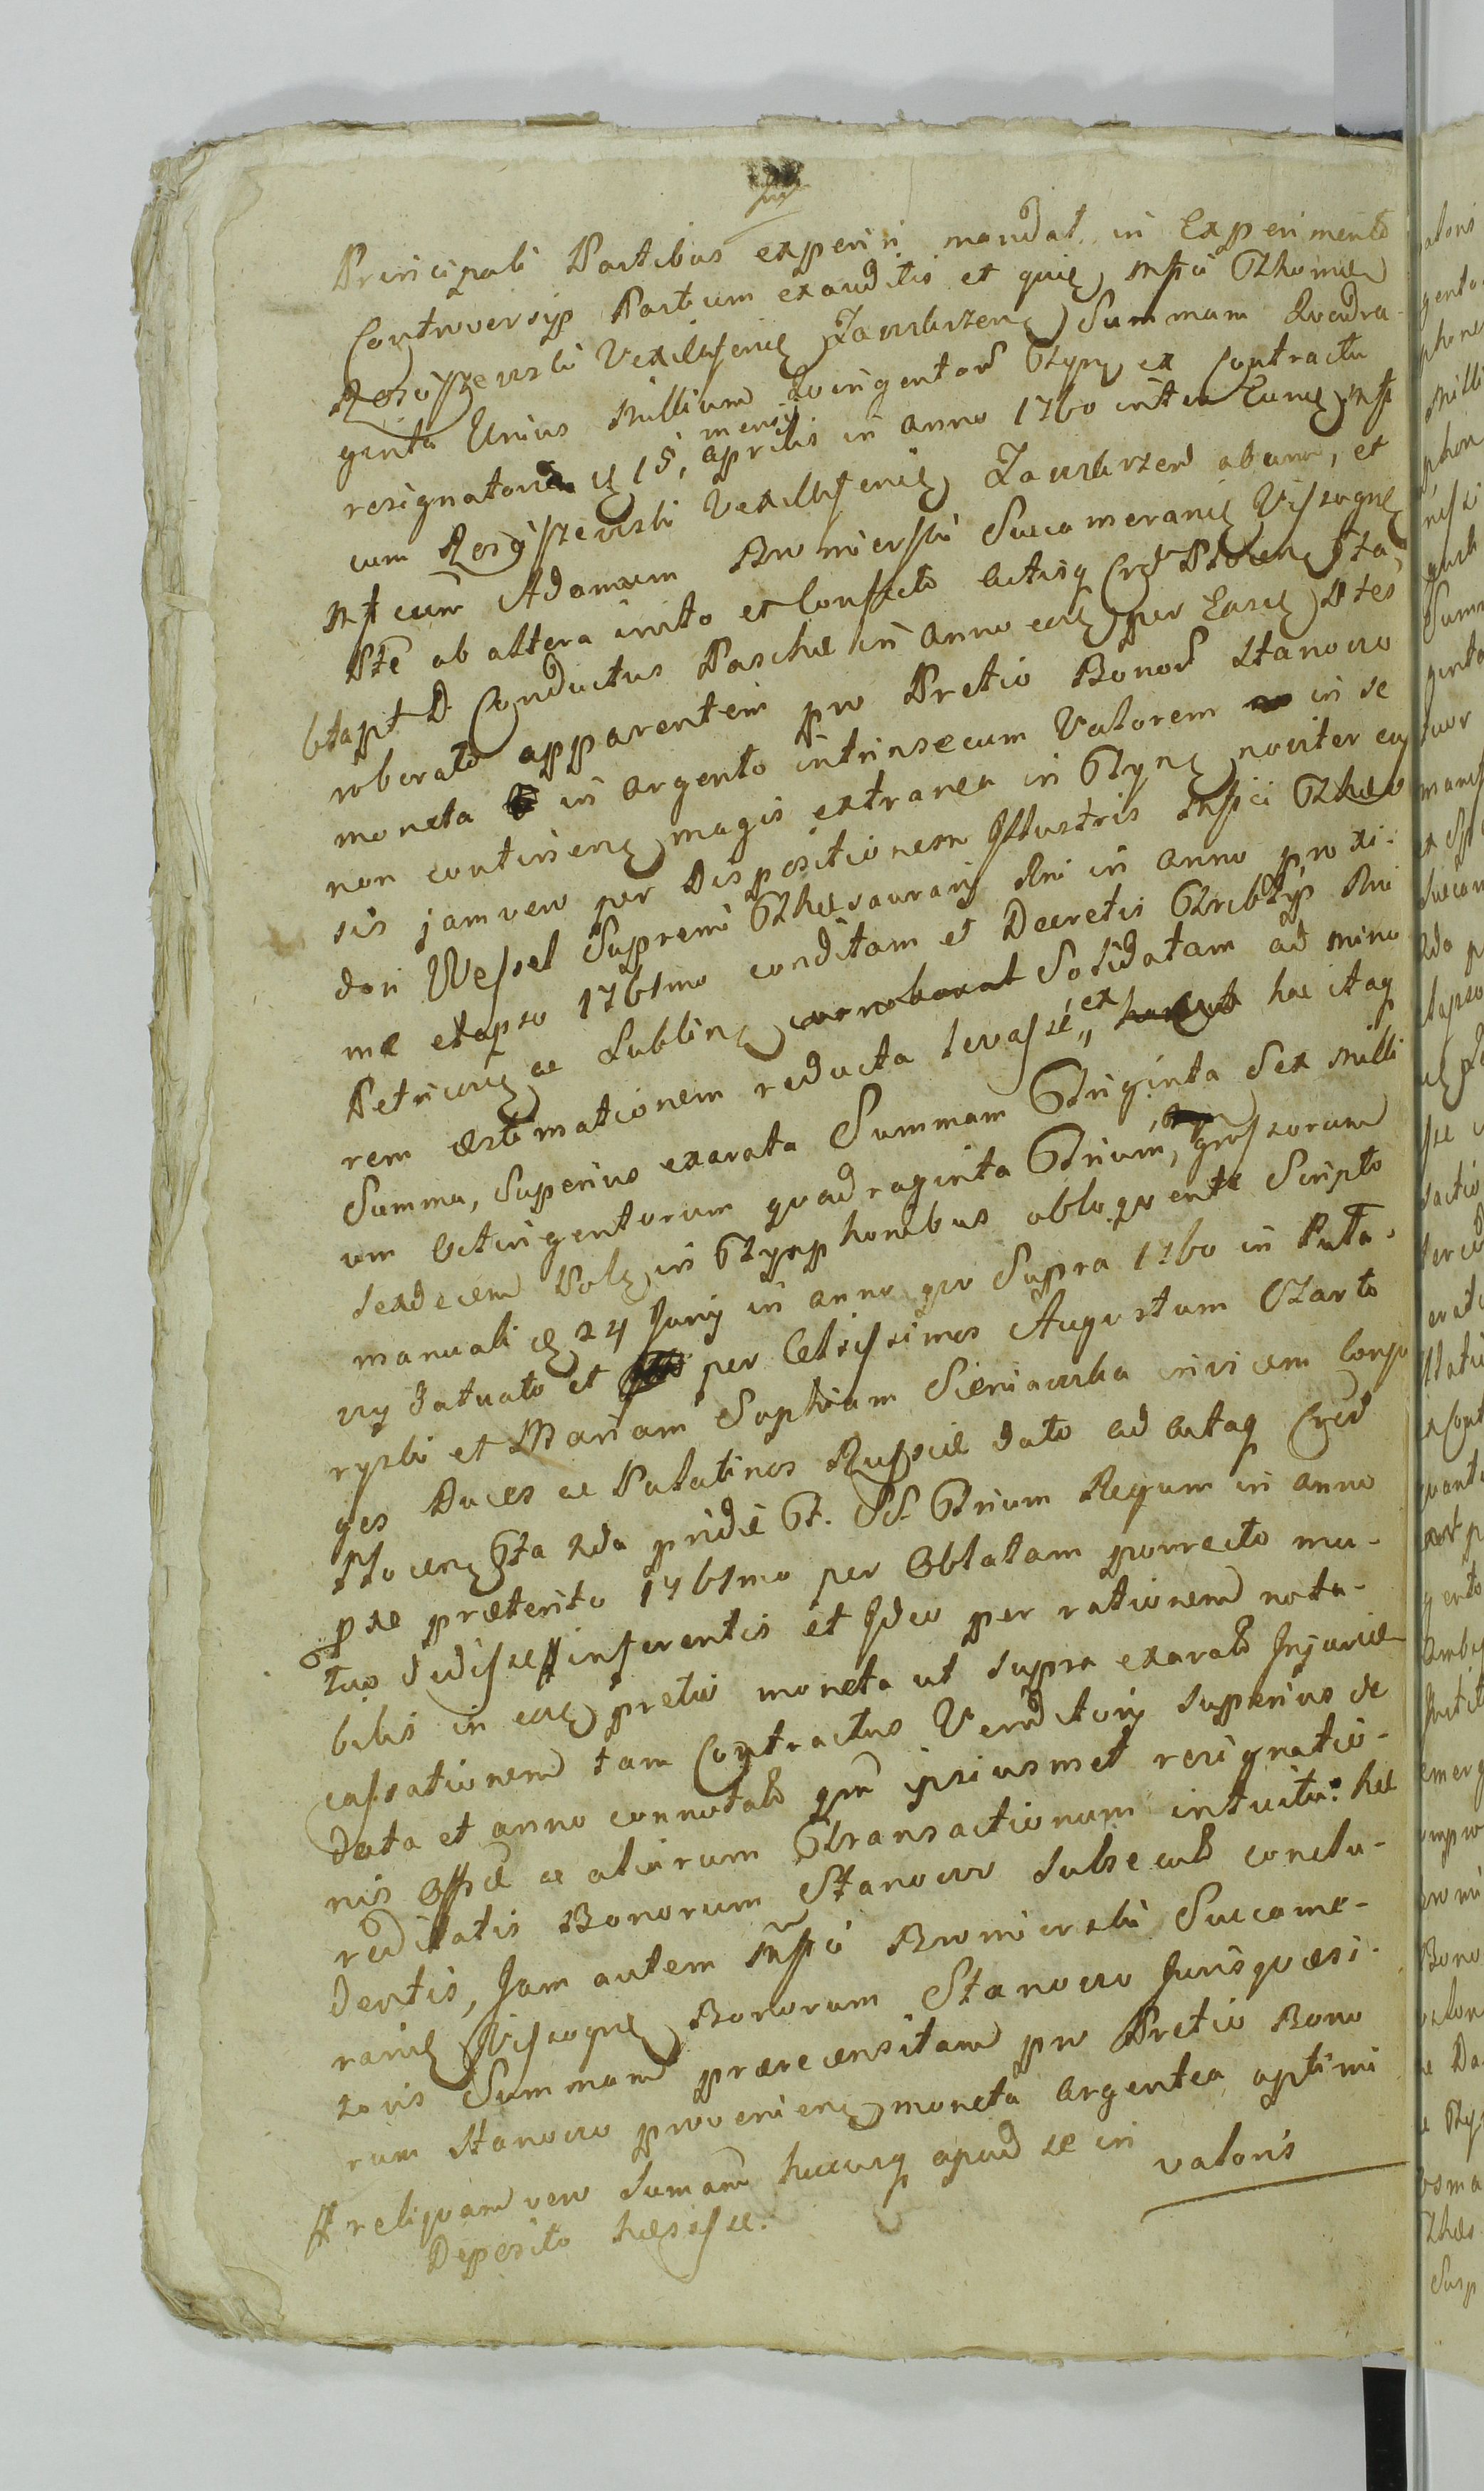 Principali Partibus experiri mandat in Experimento
Controversiis Partium exauditis et quia Mfci Thomæ
Rosciszewski Vexilliferi Zawkrzen Summam Quadra-
ginta Unius Millium Quingentor Tynf ex Contractu
resignatorio 15, mensis Aprilis in Anno 1760 inter Eund Mfc
cum Rosciszewski Vexilliferi Zawkrzen ab una, et
Mfcum Adamum Bromierski Succamerarium Vissogn
Pte ab altera inito et Confecto Actisq Crd Plocen Fta
6ta pt D Conductus Paschæ in Anno eod per Easd Ptes
roborato apparentem pro Pretio Bonor Stanowo
moneta in argento intrinsecum Valorem in se
non continen magis extranea in Tynf noviter cu
sis jam vero per Dispositionem Illustris Mfci Theo
dori Wessel Supremi Thesaurarii Rni in Anno proxi-
me elapso 1761mo conditam et Decretis Tribtys Rni
Petricovien ac Lublinen Solidatam ad mino
rem æstimationem reducta levasse, ex hac itaq
Summa, Superius exarata Summam Triginta Sex Milli
um Octingentorum quadraginta Trium, grossorum
Sexdecem Pol in Tynphonibus obloquente Scripto
manuali 24 Junii in anno quo Supra 1760 in Puta-
vy datuato et per Celsissimos Augustum Czarto
ryski et Mariam Sophiam Sieniawska invicem Conju
ges Duces ac Palatinos Russiæ dato ad Actaq Crd
Plocen Fta 2da pridie F. SS. Trium Regum in anno
præterito 1761mo per Oblatam porrecto mu-
tuo dedisse # inferentis et Ideo per rationem nota-
bilis in eod pretio moneta ut supra exarato Injuriæ
cassationem tam Contractus Venditorii Superius de
data et anno connotato qm ipsiusmet resignatio-
nis Offe ac aliorum Transactionum intuitu hæ
reditatis Bonorum Stanowo Subsecuto conclu-
dentis, Jam autem Mfci Bromierski Succame-
rarii Vissogn Bonorum Stanowo Jurisquæsi-
toris Summam præcensitam pro Pretio Bono
rum Stanowo provenien moneta Argentea optimi
valoris
# reliquam vero Sumam hucusq apud se in
Deposito hæsisse.